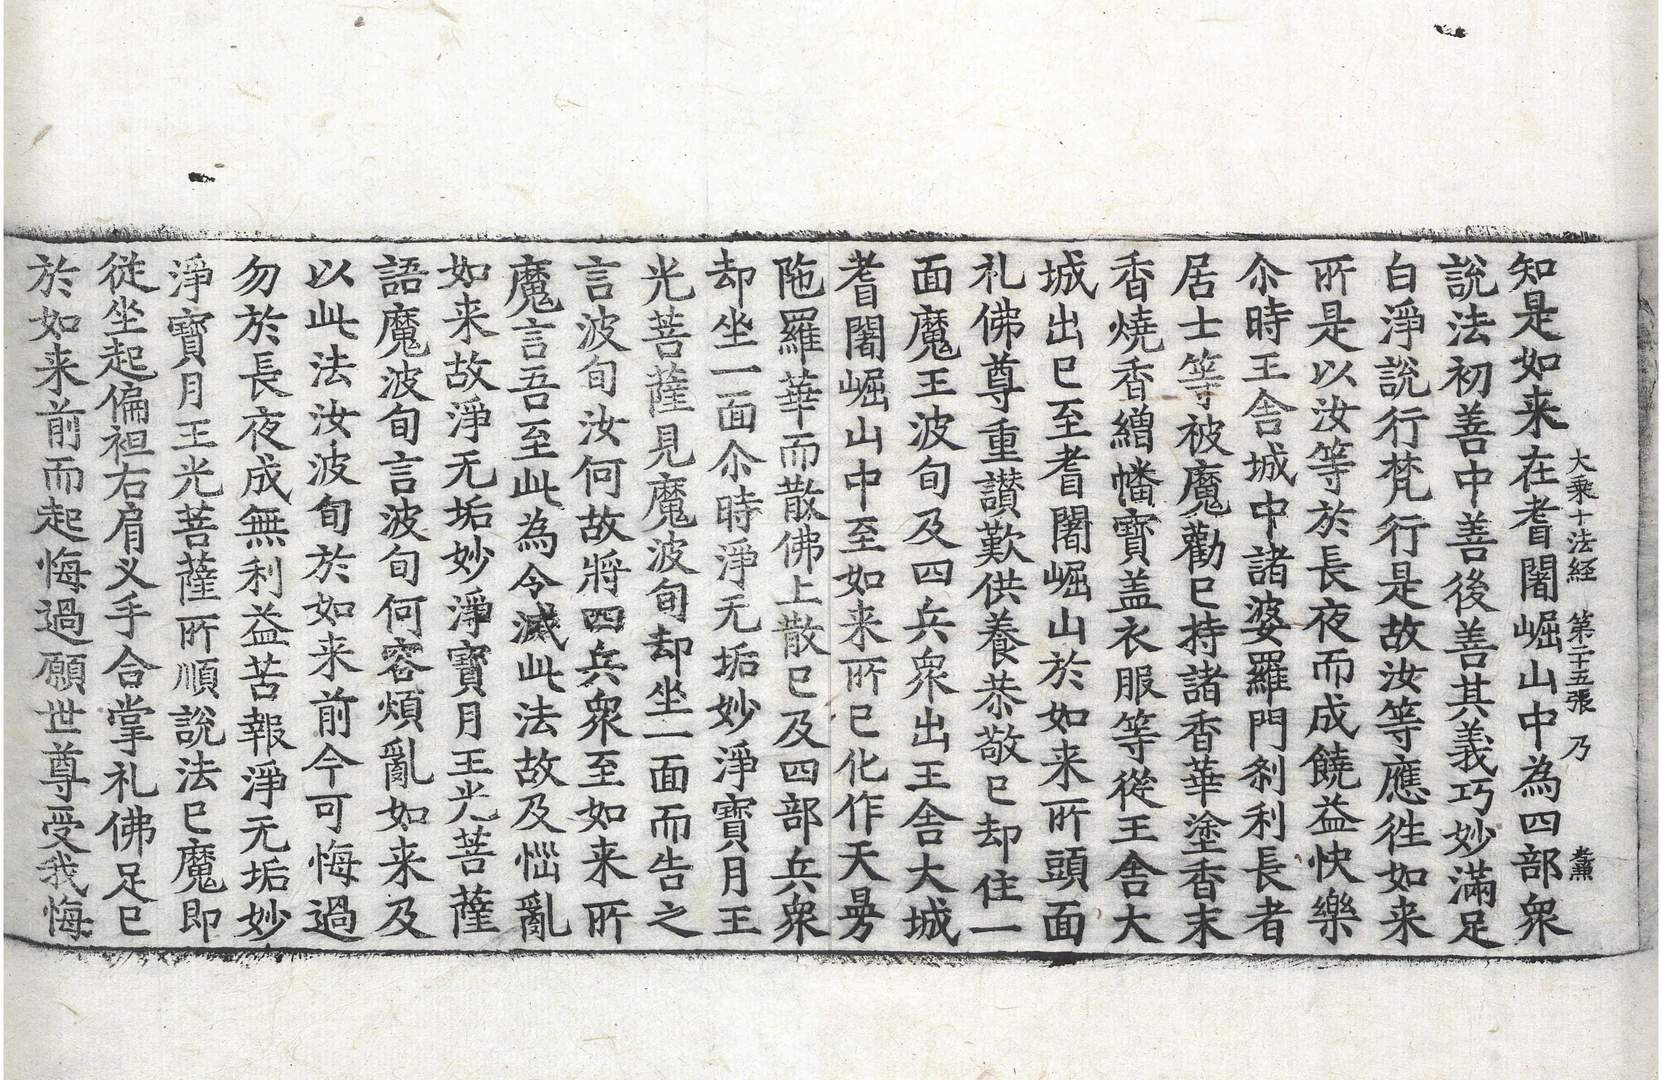 大乗十法経　第二十五張　乃
知是如来在耆闍崛山中為四部衆
說法初善中善後善其義巧妙滿足
白淨說行梵行是故汝等應徃如来
所是以汝等於長夜而成饒益快樂
尒時王舍城中諸婆羅門刹利長者
居士等被魔勸已持諸香華塗香末
香燒香繒幡寶盖衣服等從王舍大
城出已至耆闍崛山於如来所頭面
礼佛尊重讃歎供養恭敬已却住一
面魔王波旬及四兵衆出王舍大城
耆闍崛山中至如来所已化作天曼
陁羅華而散佛上散已及四部兵衆
却坐一面尒時淨无垢妙淨寶月王
光菩薩見魔波旬却坐一面而告之
言波旬汝何故將四兵衆至如来所
魔言吾至此為令滅此法故及惱亂
如来故淨无垢妙淨寶月王光菩薩
語魔波旬言波旬何容煩亂如来及
以此法汝波旬於如来前今可悔過
勿於長夜成無利益苦報淨无垢妙
淨寶月王光菩薩所順說法已魔即
從坐起偏袒右肩义手合掌礼佛足已
於如来前而起悔過願世尊受我悔